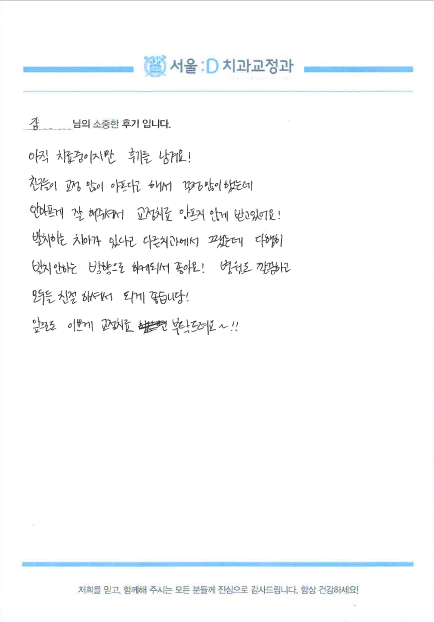 서울:D 치과교정과
님의 소중한 후기 입니다.
아직 치료중이지만 후기를 남겨요!
친구들이 교정 많이 아프다고 해서 걱정 많이 했는데
안아프게 잘 해주셔서 교정치료 아프지 않게 받고있어요!
발치하는 치아가 있다고 다른치과에서 그랬는데 다행히
발치안하는 방향으로 하게되서 좋아요! 병원도 깔끔하고
모두들 친절 하셔서 되게 좋습니당!
앞으로도 이쁘게 교정치료 부탁드려요~!!
저희를 믿고, 함께해 주시는 모든 분들께 진심으로 감사드립니다. 항상 건강하세요!